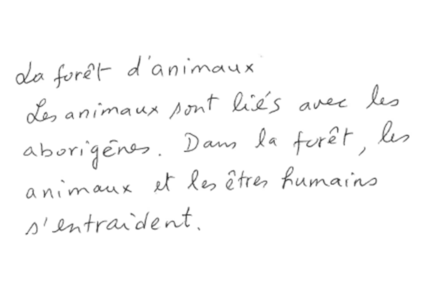 La forêt d'animaux
Les animaux sont liés avec les
aborigênes. Dans la forêt, les
animaux et les êtres humains
s'entraident.